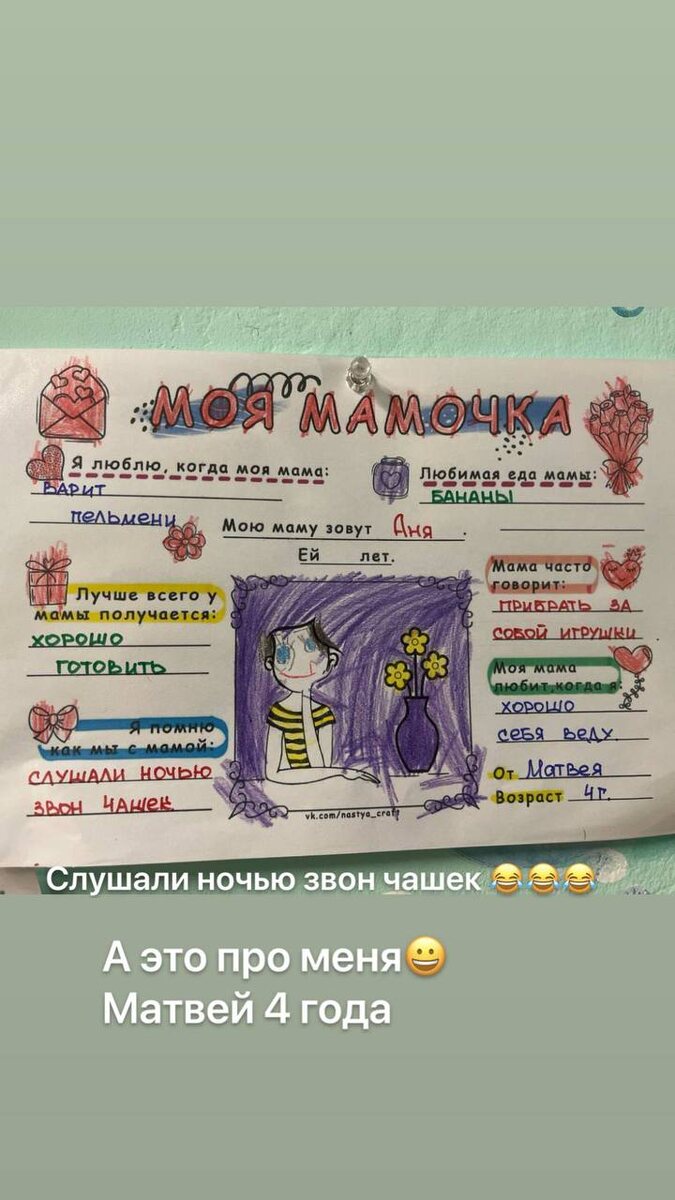 МОЯ МАМОЧКА
Я люблю, когда моя мама:
ВАРИТ
ПЕЛЬМЕНИ
Любимая еда мамы:
БАНАНЫ
Мою маму зовут Аня.
Ей лет.
Лучше всего у
мамы получается:
ХОРОШО
ГОТОВИТЬ
Мама часто
говорит:
ПРИБРАТЬ ЗА
СОБОЙ ИГРУШКИ
Я помню
как мы с мамой:
СЛУШАЛИ НОЧЬЮ
ЗВОН ЧАШЕК
Моя мама
любит,когда я:
ХОРОШО
СЕБЯ ВЕДУ.
От Матвея
Возраст 4г.
vk.com/nastya_craft
Слушали ночью звон чашек 😂😂😂
А это про меня😀
Матвей 4 года